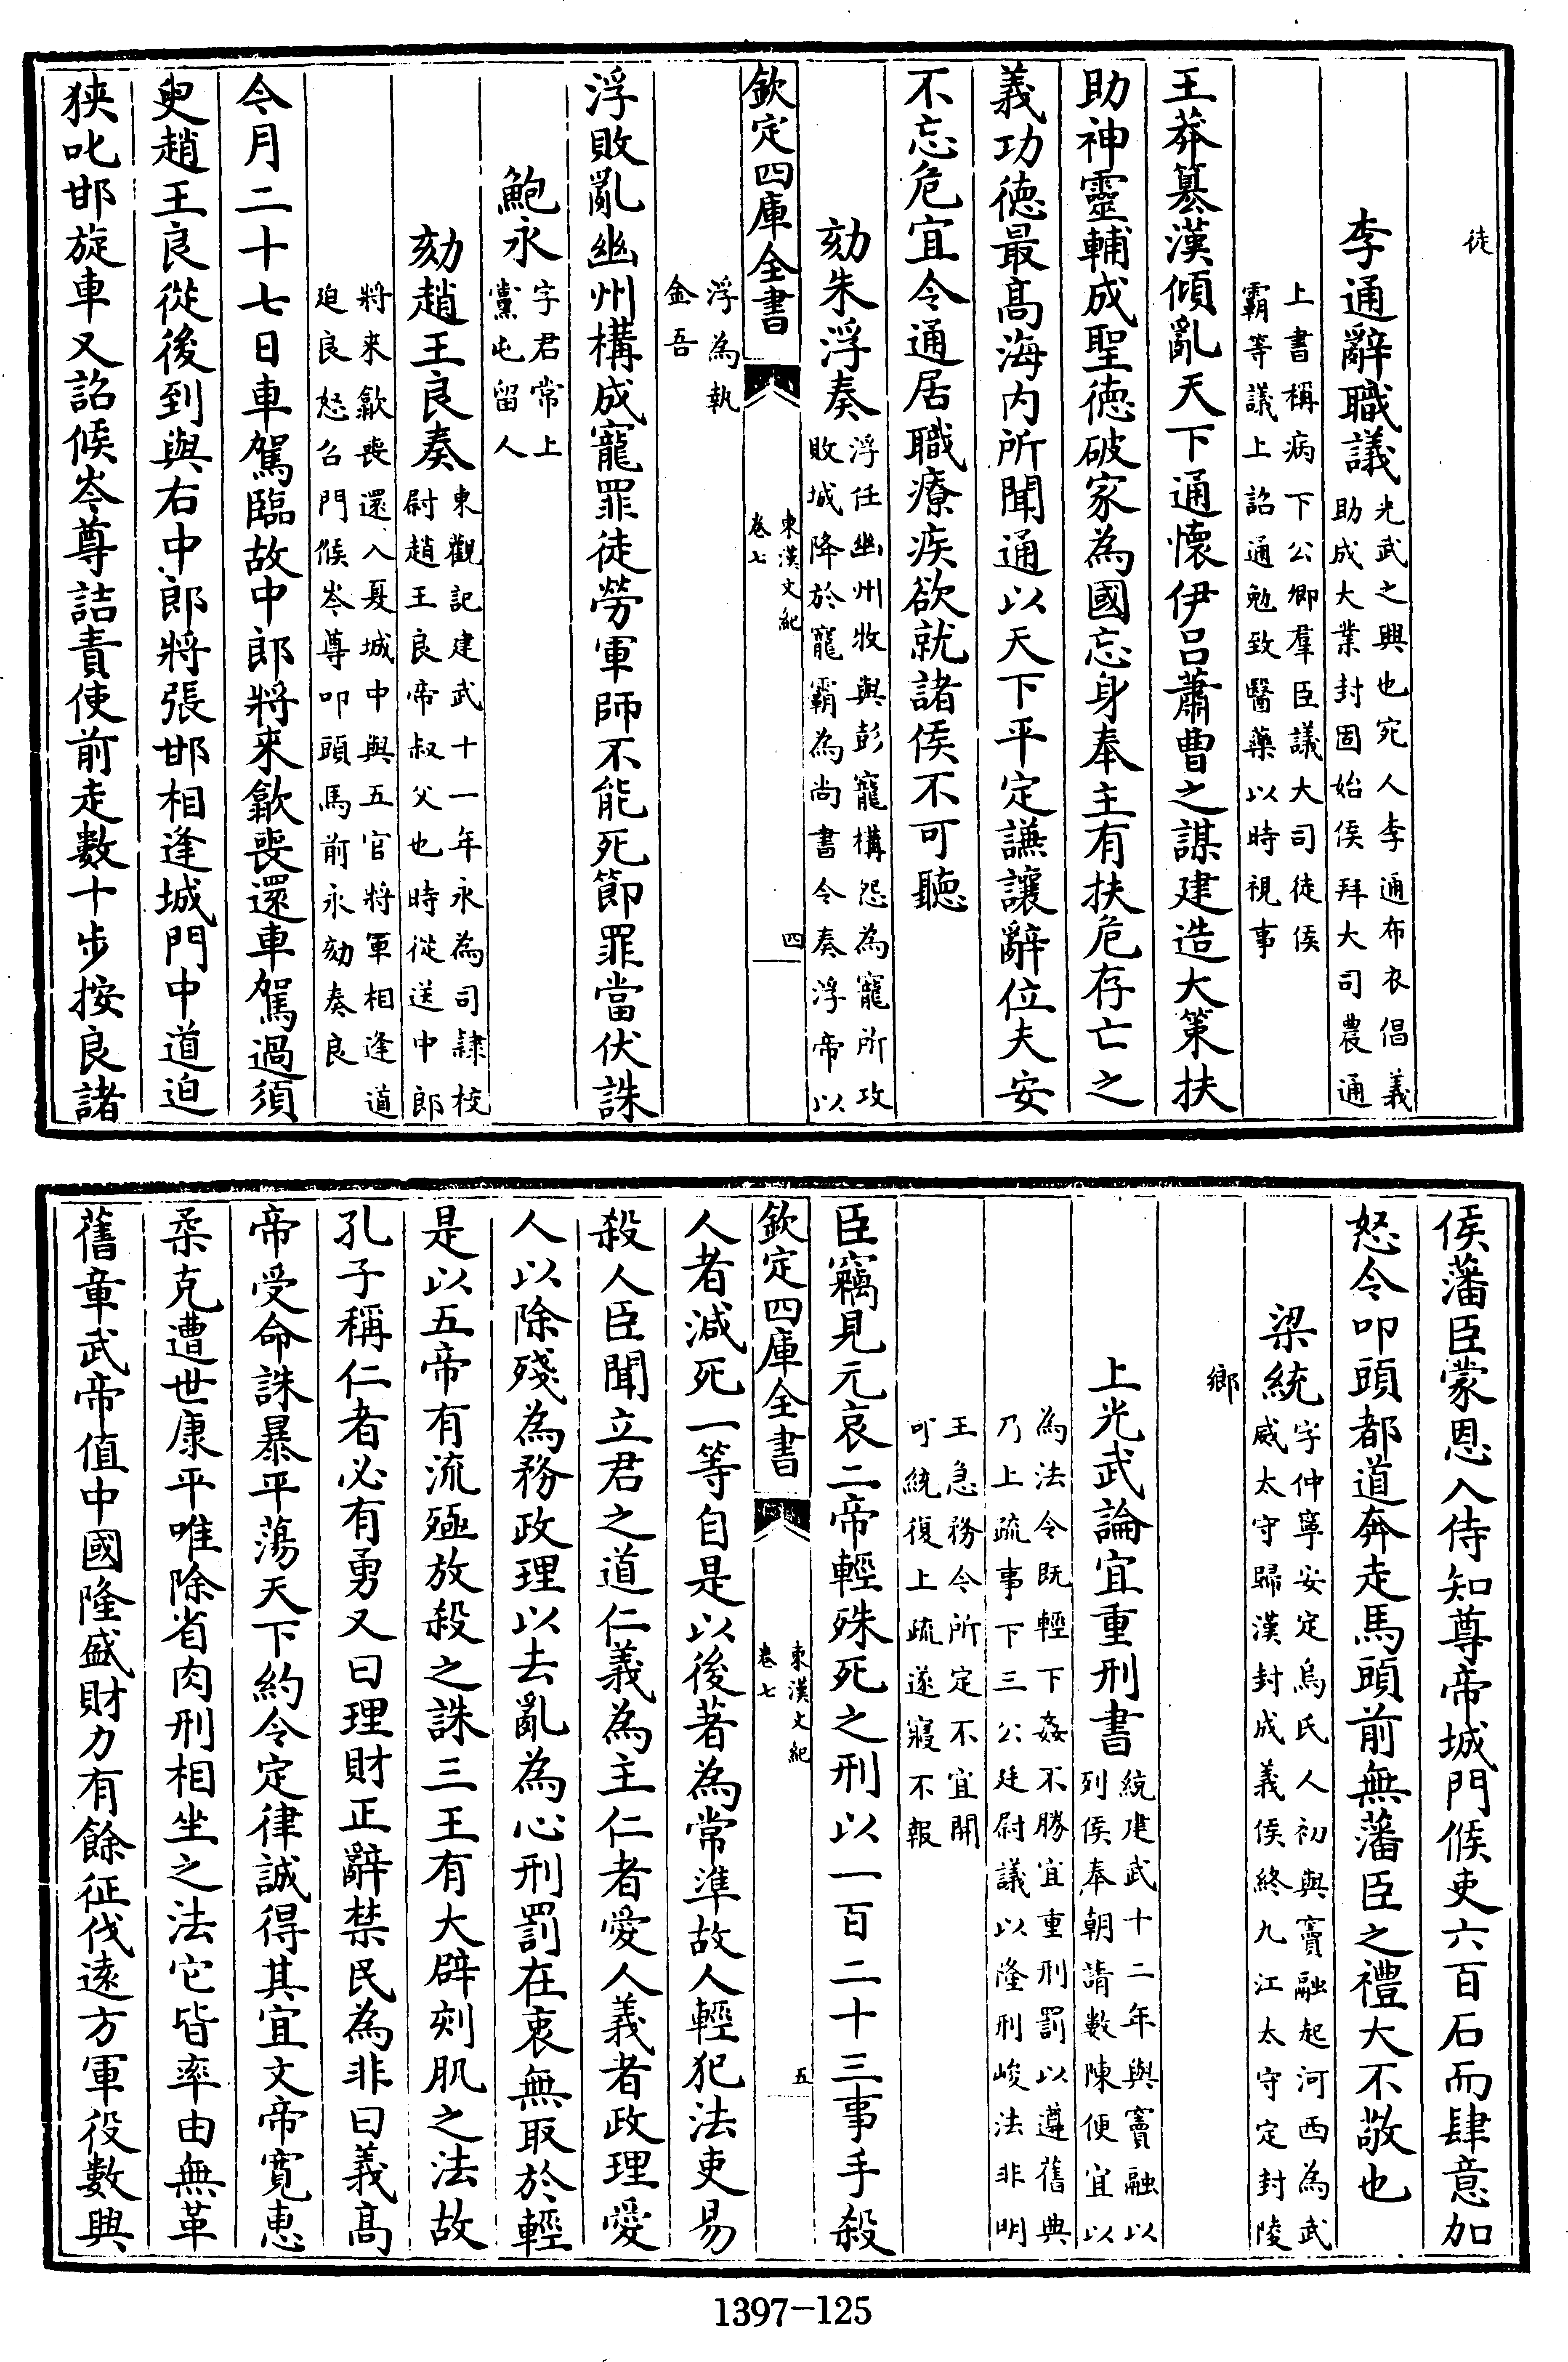 徒
李通辭職議光武之興也宛人李通布衣倡義
助成大業封固始侯拜大司農通
上書稱病下公卿羣臣議大司徒侯
霸等議上詔通勉致醫藥以時視事
王莽篡漢傾亂天下通懷伊呂蕭曹之謀建造大策扶
助神靈輔成聖德破家為國忘身奉主有扶危存亡之
義功德最高海內所聞通以天下平定謙讓辭位夫安
不忘危宜令通居職療疾欲就諸侯不可聽
劾朱浮奏浮任幽州牧與彭寵構怨為寵所攻
敗城降於寵霸為尚書令奏浮帝以
欽定四庫全書
東漢文紀
卷七
四
浮為執
金吾
浮敗亂幽州構成寵罪徒勞軍師不能死節罪當伏誅
鮑永字君常上
黨屯留人
劾趙王良奏東觀記建武十一年永為司隸校
尉趙王良帝叔父也時從送中郎
將來歙喪還入夏城中與五官將軍相逢道
廹良怒召門候岑尊叩頭馬前永劾奏良
今月二十七日車駕臨故中郎將來歙喪還車駕過須
臾趙王良從後到與右中郎將張邯相逢城門中道迫
狹叱邯旋車又詔候岑尊詰責使前走數十步按良諸
侯藩臣蒙恩入侍知尊帝城門候吏六百石而肆意加
怒令叩頭都道奔走馬頭前無藩臣之禮大不敬也
梁統字仲寧安定烏氏人初與竇融起河西為武
威太守歸漢封成義侯終九江太守定封陵
鄉
上光武論宜重刑書統建武十二年與竇融以
列侯奉朝請數陳便宜以
為法令既輕下姦不勝宜重刑罰以遵舊典
乃上疏事下三公廷尉議以隆刑峻法非明
王急務令所定不宜開
可統復上疏遂寢不報
臣竊見元哀二帝輕殊死之刑以一百二十三事手殺
欽定四庫全書
東漢文紀
卷七
五
人者減死一等自是以後著為常準故人輕犯法吏易
殺人臣聞立君之道仁義為主仁者愛人義者政理愛
人以除殘為務政理以去亂為心刑罰在衷無取於輕
是以五帝有流殛放殺之誅三王有大辟刻肌之法故
孔子稱仁者必有勇又曰理財正辭禁民為非曰義高
帝受命誅暴平蕩天下約令定律誠得其宜文帝寬惠
柔克遭世康平唯除省肉刑相坐之法它皆率由無革
舊章武帝值中國隆盛財力有餘征伐遠方軍役數興
1397-125